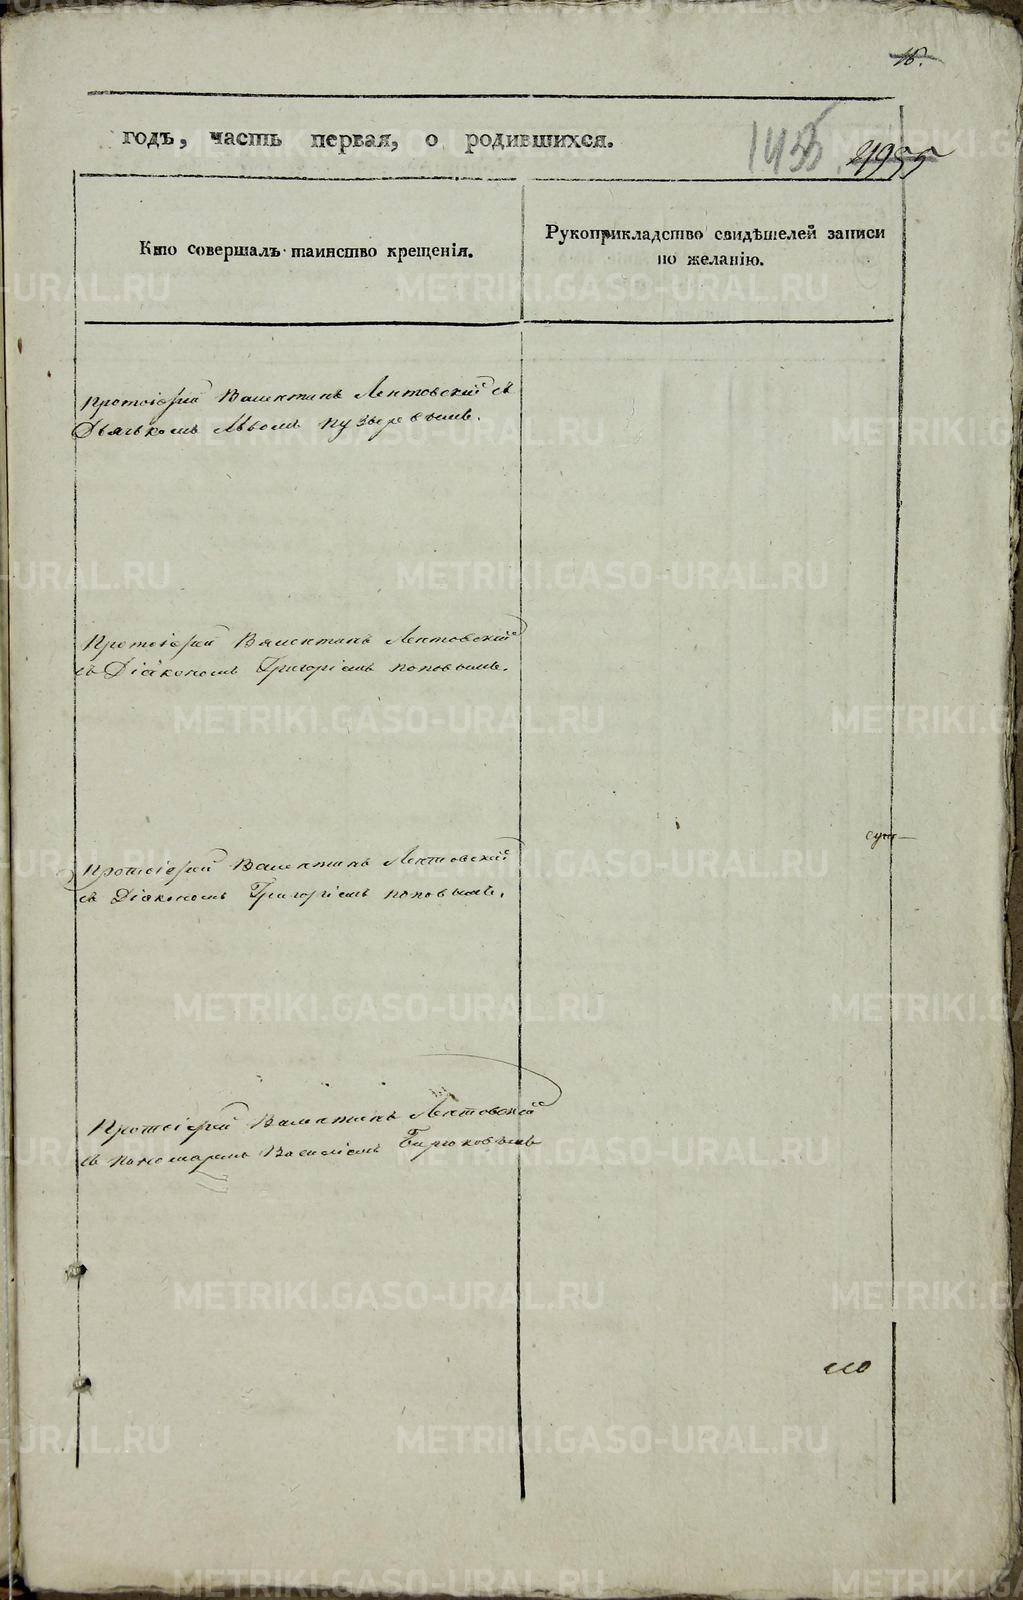 18.
годъ, часть первая, о родившихся.
1455
Кто совершалъ таинство крещенія.
Рукоприкладство свидѣтелей записи
по желанію.
Протоіерей Валентинъ Лентовскій съ
Дьячкомъ Львомъ Пузыревымъ.
Протоіерей Валентинъ Лентовскій
съ Діакономъ Григоріемъ Поповымъ.
Протоіерей Валентинъ Лентовскій
съ Діакономъ Григоріемъ Поповымъ.
Протоіерей Валентинъ Лентовскій
съ пономаремъ Василіемъ Бирюковымъ
METRIKI.GASO-URAL.RU